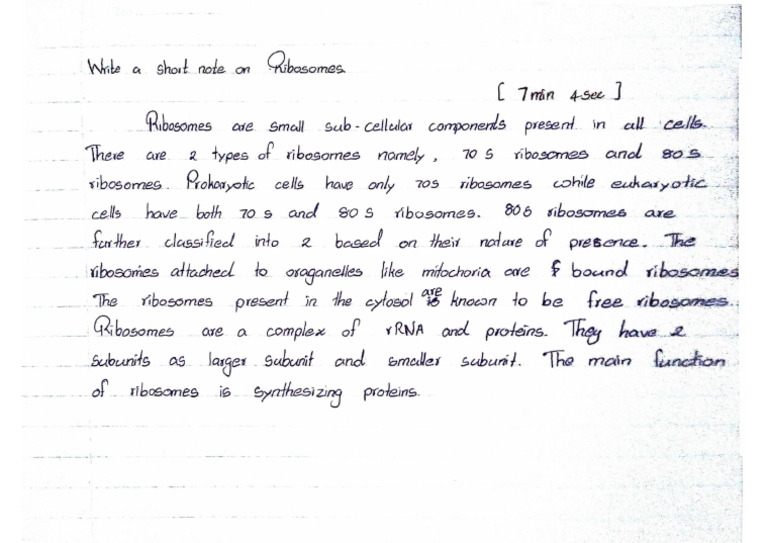 Write a short note on Ribosomes.
[ 7 min 4 sec ]
Ribosomes are small sub-cellular components present in all cells.
There are 2 types of ribosomes namely, 70 S ribosomes and 80 S
ribosomes. Prokaryotic cells have only 70s ribosomes while eukaryotic
cells have both 70 s and 80 S ribosomes. 80s ribosomes are
further classified into 2 based on their nature of presence. The
ribosomes attached to oraganelles like mitochoria are bound ribosomes
The ribosomes present in the cytosol are known to be free ribosomes.
Ribosomes are a complex of rRNA and proteins. They have 2
subunits as larger subunit and smaller subunit. The main function
of ribosomes is synthesizing proteins.